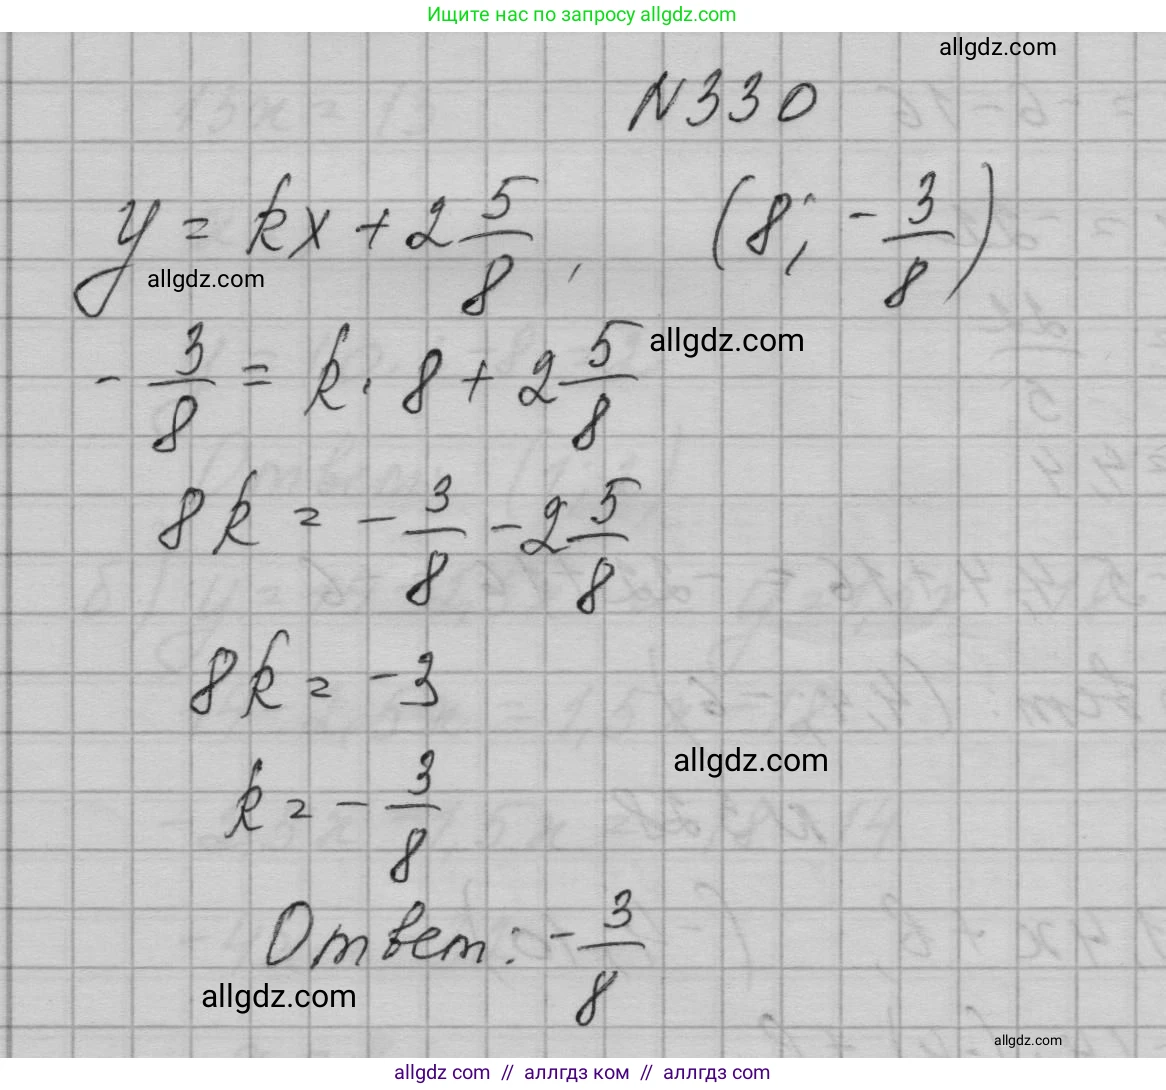 Ищите нас по запросу allgdz.com
allgdz.com
N330
y = kx + 2 5/8, (8; -3/8)
allgdz.com
-3/8 = k · 8 + 2 5/8
allgdz.com
8k = -3/8 - 2 5/8
8k = -3
allgdz.com
k = -3/8
Ответ: -3/8
allgdz.com
allgdz.com
allgdz.com // аллгдз ком // allgdz.com